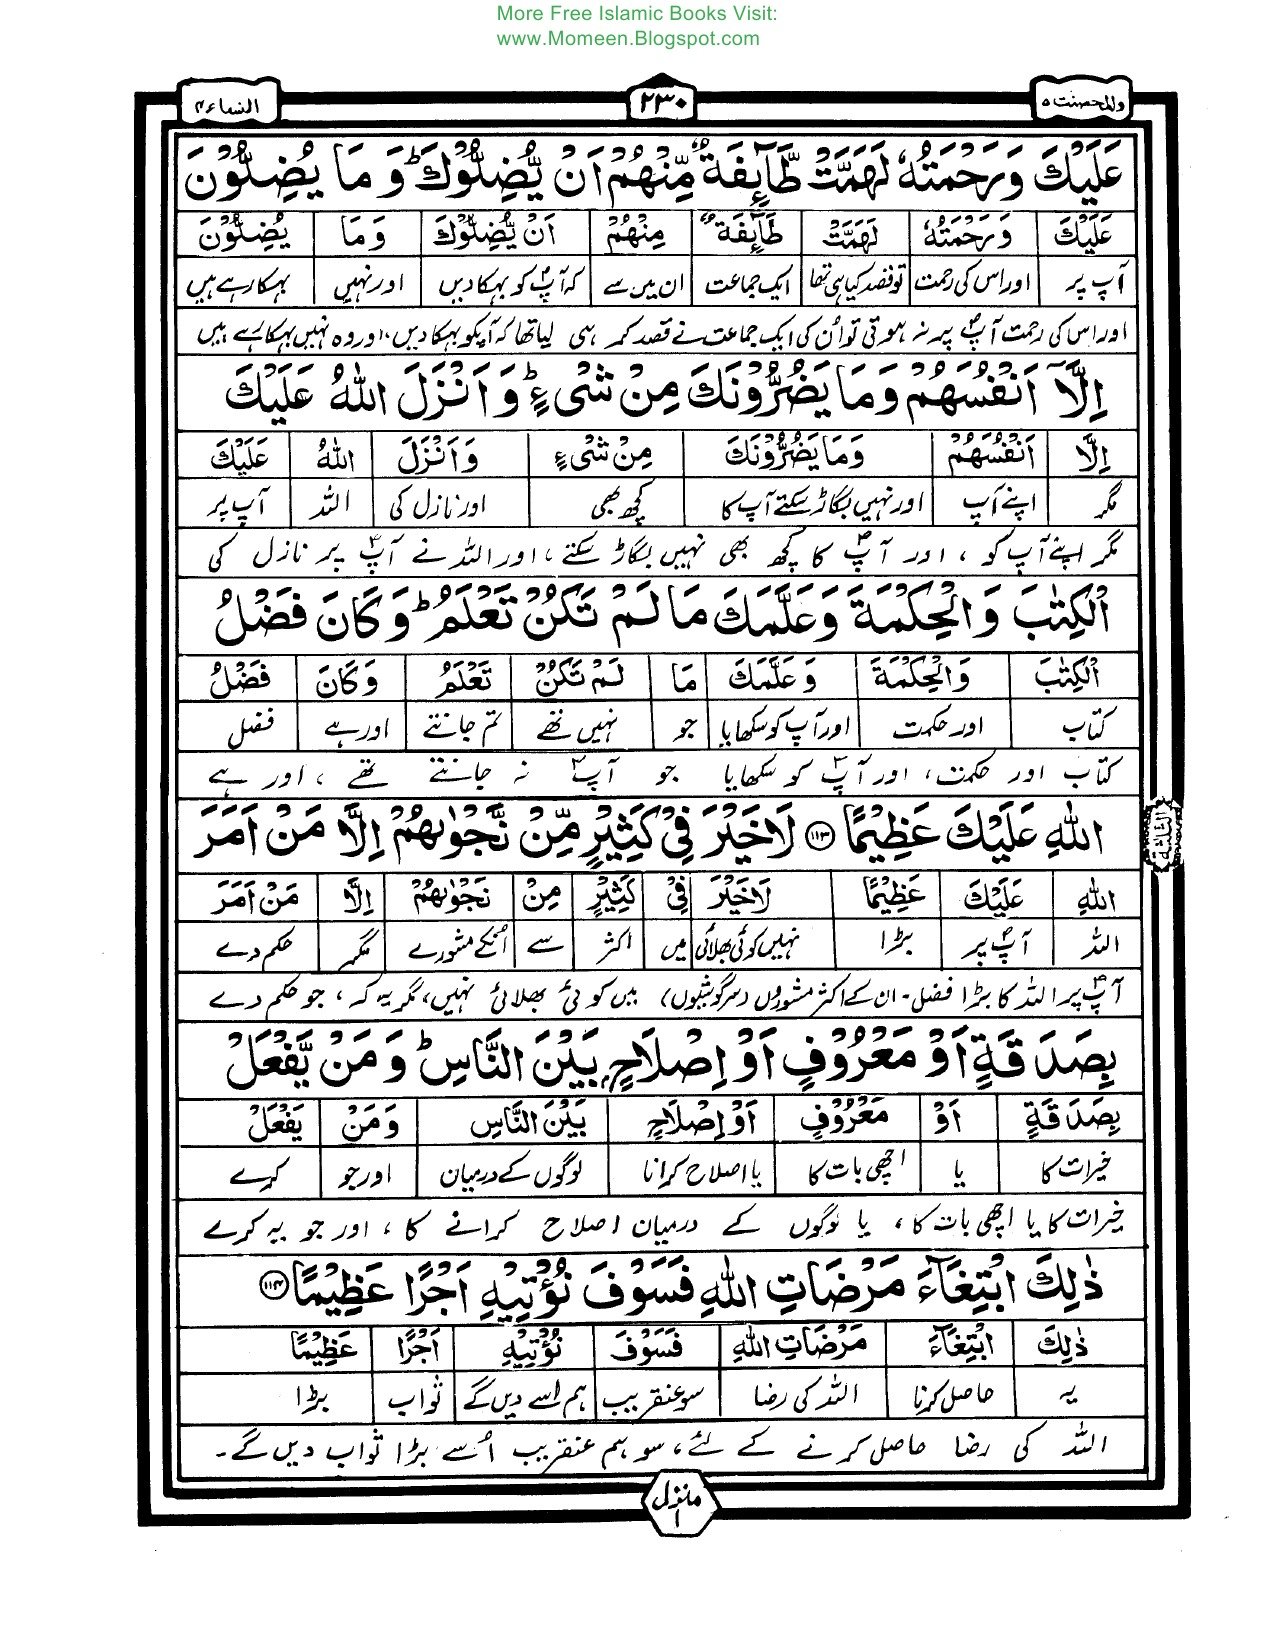 More Free Islamic Books Visit:
www.Momeen.Blogspot.com
والمحصنت ۵ ۲۳۰ النساء ۴
عَلَيْكَ وَرَحْمَتُهٗ لَهَمَّتْ طَّآئِفَةٌ مِّنْهُمْ اَنْ يُّضِلُّوْكَ ؕ وَمَا يُضِلُّوْنَ
عَلَيْكَ وَرَحْمَتُهٗ لَهَمَّتْ طَآئِفَةٌ مِنْهُمْ اَنْ يُّضِلُّوْكَ وَمَا يُضِلُّوْنَ
آپ پر اور اس کی رحمت تو قصد کیا ہی تھا ایک جماعت ان میں سے کہ آپؐ کو بہکا دیں اور نہیں بہکا رہے ہیں
اور اس کی رحمت آپؐ پر نہ ہوتی تو اُن کی ایک جماعت نے قصد کر ہی لیا تھا کہ آپکو بہکا دیں، اور وہ نہیں بہکا رہے ہیں
اِلَّاۤ اَنْفُسَهُمْ وَمَا يَضُرُّوْنَكَ مِنْ شَيْءٍ ؕ وَاَنْزَلَ اللّٰهُ عَلَيْكَ
اِلَّا اَنْفُسَهُمْ وَمَا يَضُرُّوْنَكَ مِنْ شَيْءٍ وَاَنْزَلَ اللّٰهُ عَلَيْكَ
مگر اپنے آپ اور نہیں بگاڑ سکتے آپ کا کچھ بھی اور نازل کی اللہ آپ پر
مگر اپنے آپ کو ، اور آپؐ کا کچھ بھی نہیں بگاڑ سکتے ، اور اللہ نے آپؐ پر نازل کی
الْكِتٰبَ وَالْحِكْمَةَ وَعَلَّمَكَ مَا لَمْ تَكُنْ تَعْلَمُ ؕ وَكَانَ فَضْلُ
الْكِتٰبَ وَالْحِكْمَةَ وَعَلَّمَكَ مَا لَمْ تَكُنْ تَعْلَمُ وَكَانَ فَضْلُ
کتاب اور حکمت اور آپ کو سکھایا جو نہیں تھے تم جانتے اور ہے فضل
کتاب اور حکمت، اور آپؐ کو سکھایا جو آپؐ نہ جانتے تھے ، اور ہے
اللّٰهِ عَلَيْكَ عَظِيْمًا ۝۱۱۳ لَا خَيْرَ فِيْ كَثِيْرٍ مِّنْ نَّجْوٰىهُمْ اِلَّا مَنْ اَمَرَ
اللّٰهِ عَلَيْكَ عَظِيْمًا لَا خَيْرَ فِيْ كَثِيْرٍ مِنْ نَجْوٰىهُمْ اِلَّا مَنْ اَمَرَ
اللہ آپؐ پر بڑا نہیں کوئی بھلائی میں اکثر سے اُنکے مشورے مگر حکم دے
آپؐ پر اللہ کا بڑا فضل ۔ ان کے اکثر مشوروں (سرگوشیوں) میں کوئی بھلائی نہیں، مگر یہ کہ ، جو حکم دے
بِصَدَقَةٍ اَوْ مَعْرُوْفٍ اَوْ اِصْلَاحٍۭ بَيْنَ النَّاسِ ؕ وَمَنْ يَّفْعَلْ
بِصَدَقَةٍ اَوْ مَعْرُوْفٍ اَوْ اِصْلَاحٍ بَيْنَ النَّاسِ وَمَنْ يَفْعَلْ
خیرات کا یا اچھی بات کا یا اصلاح کرانا لوگوں کے درمیان اور جو کرے
خیرات کا یا اچھی بات کا ، یا لوگوں کے درمیان اصلاح کرانے کا ، اور جو یہ کرے
ذٰلِكَ ابْتِغَآءَ مَرْضَاتِ اللّٰهِ فَسَوْفَ نُؤْتِيْهِ اَجْرًا عَظِيْمًا ۝۱۱۴
ذٰلِكَ ابْتِغَآءَ مَرْضَاتِ اللّٰهِ فَسَوْفَ نُؤْتِيْهِ اَجْرًا عَظِيْمًا
یہ حاصل کرنا اللہ کی رضا سو عنقریب ہم اسے دیں گے ثواب بڑا
اللہ کی رضا حاصل کرنے کے لئے، سو ہم عنقریب اُسے بڑا ثواب دیں گے۔
الثلثة
منزل ۱